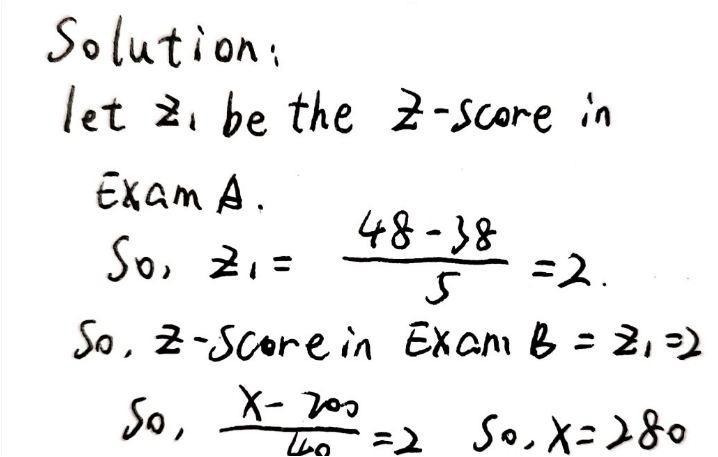 Solution:
let z₁ be the z-score in
Exam A.
So, z₁ = (48-38)/5 = 2.
So, z-score in Exam B = z₁ = 2
So, (X-200)/40 = 2 So, X = 280